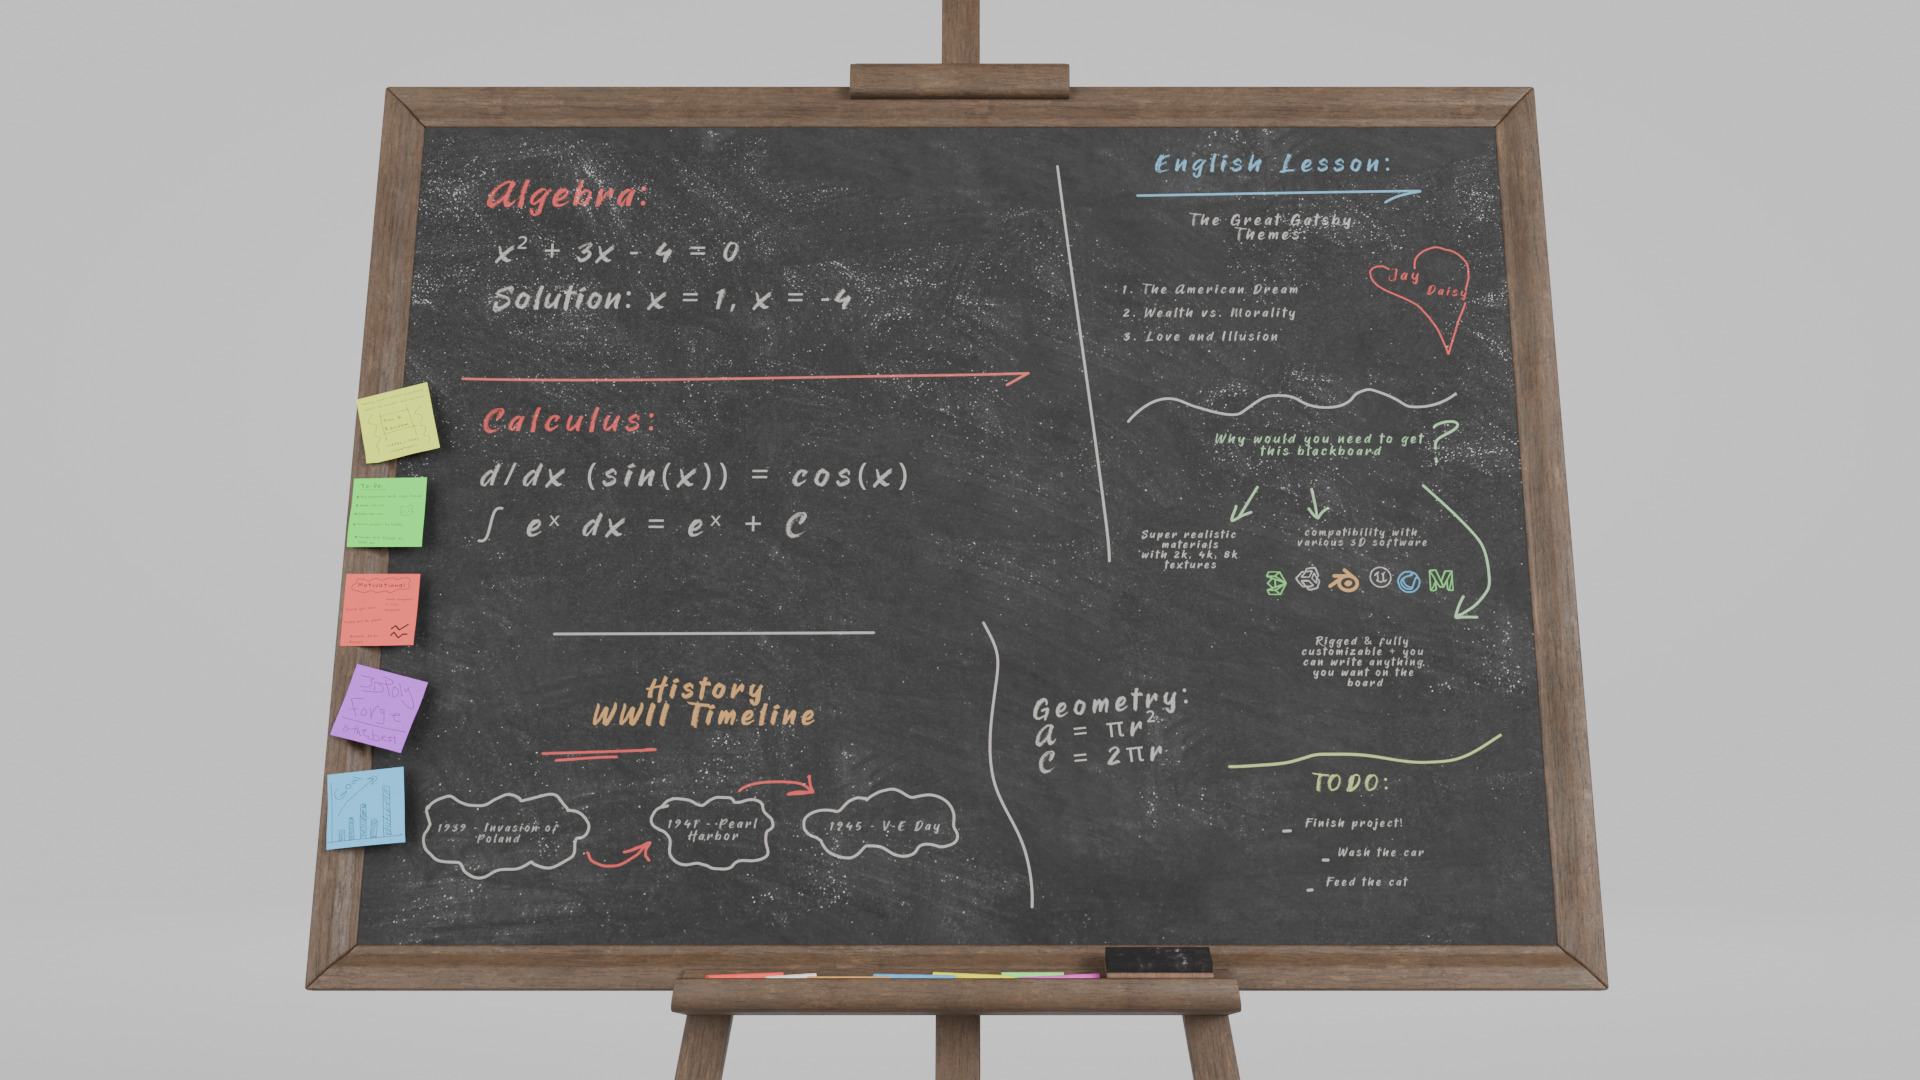 Algebra:
x² + 3x - 4 = 0
Solution: x = 1, x = -4
Calculus:
d/dx (sin(x)) = cos(x)
∫ eˣ dx = eˣ + C
History
WWII Timeline
1939 - Invasion of
Poland
1941 - Pearl
Harbor
1945 - V-E Day
English Lesson:
The Great Gatsby
Themes:
1. The American Dream
2. Wealth vs. Morality
3. Love and Illusion
Jay
Daisy
Why would you need to get
this blackboard
?
Super realistic
materials
with 2k, 4k, 8k
textures
compatibility with
various 3D software
Rigged & fully
customizable + you
can write anything
you want on the
board
Geometry:
a = πr²
C = 2πr
TODO:
- Finish project!
- Wash the car
- Feed the cat
To-Do:
Motivational
3DPoly
Forge
is the best